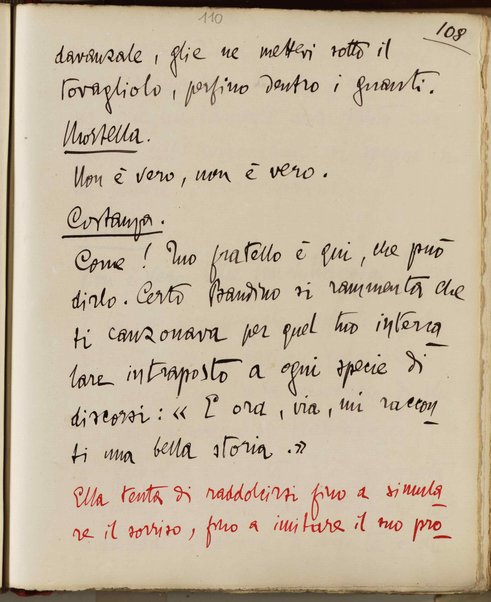 110
108
davanzale, glie ne mettevi sotto il
tovagliolo, perfino dentro i guanti.
Mortella.
Non è vero, non è vero.
Costanza.
Come! Tuo fratello è qui, che può
dirlo. Certo Bandino si rammenta che
ti canzonava per quel tuo interca
lare intraposto a ogni specie di
discorsi: « E ora, via, mi raccon
ti una bella storia.»
Ella tenta di raddolcirsi fino a simula
re il sorriso, fino a imitare il suo pro